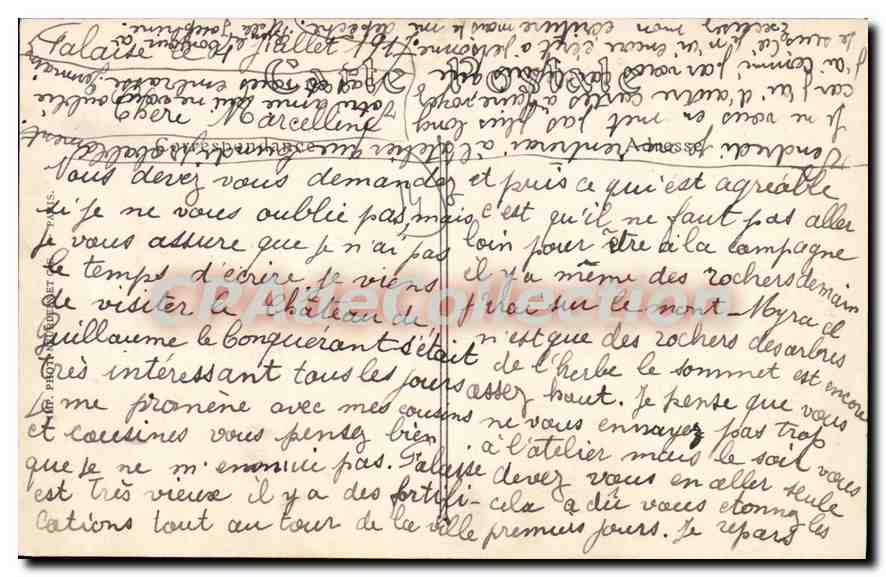 Falaise le 4 Juillet 191
Carte Postale
Chère Marcelline
Correspondance
Adresse
Vous devez vous demander
si je ne vous oublie pas, mais
je vous assure que je n'ai pas
le temps d'écrire je viens
de visiter le Château de
Guillaume le Conquérant s'était
très intéressant tous les jours
je me promène avec mes cousins
et cousines vous pensez bien
que je ne m'ennuie pas. Falaise
est très vieux il y a des fortifi-
cations tout au tour de la ville
et puis ce qui est agréable
c'est qu'il ne faut pas aller
loin pour être à la campagne
il y a même des rochers demain
j'irai sur le mont Myra ce
n'est que des rochers des arbres
de l'herbe le sommet est encore
assez haut. Je pense que vous
ne vous ennuyez pas trop
à l'atelier mais le soir vous
devez vous en aller seule
cela a dû vous etonnez les
premiers jours. Je repars
Vendredi je rentrerai à l'atelier que Lundi probablement
je ne vous en met pas plus long
car j'ai d'autre cartes à faire
j'ai commencé par vous
je n'ai encore écrit a personne
Excusez mon écriture mais je me dépêche
votre amie qui ne vous oublie
pas et vous embrasse
Germaine
CPArleCollection
PARIS.